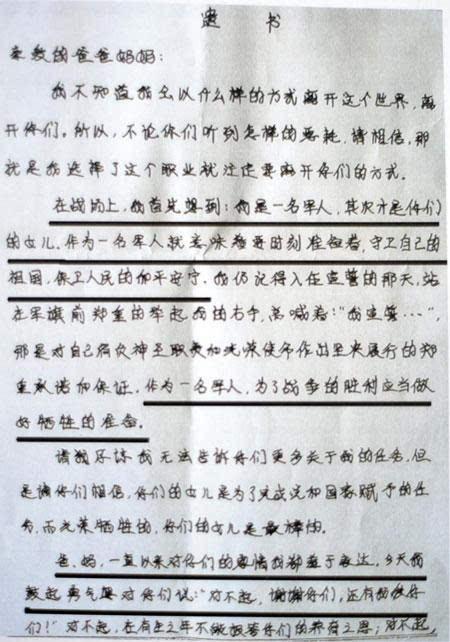 遗 书
亲敬的爸爸妈妈：
我不知道我会以什么样的方式离开这个世界，离
开你们。所以，不论你们听到怎样的噩耗，请相信，那
就是我选择了这个职业就注定要离开你们的方式。
在战场上，我首先想到：我是一名军人，其次才是你们
的女儿。作为一名军人就意味着要时刻准备着，守卫自己的
祖国，保卫人民的和平安宁。我仍记得入伍宣誓的那天，站
在军旗前郑重的举起我的右手，高喊着："我宣誓…"，
那是对自己肩负神圣职责和光荣使命作出坚决履行的郑
重承诺和保证。作为一名军人，为了战争的胜利应当做
好牺牲的准备。
请我原谅我无法告诉你们更多关于我的任务，但
是请你们相信，你们的女儿是为了完成党和国家赋予的任
务，而光荣牺牲的，你们的女儿是最棒的。
爸、妈，一直以来对你们的感情我都羞于表达，今天我
鼓起勇气要对你们说："对不起，谢谢你们，还有我爱你
们！"对不起，在有生之年不能报答你们的养育之恩；对不起，